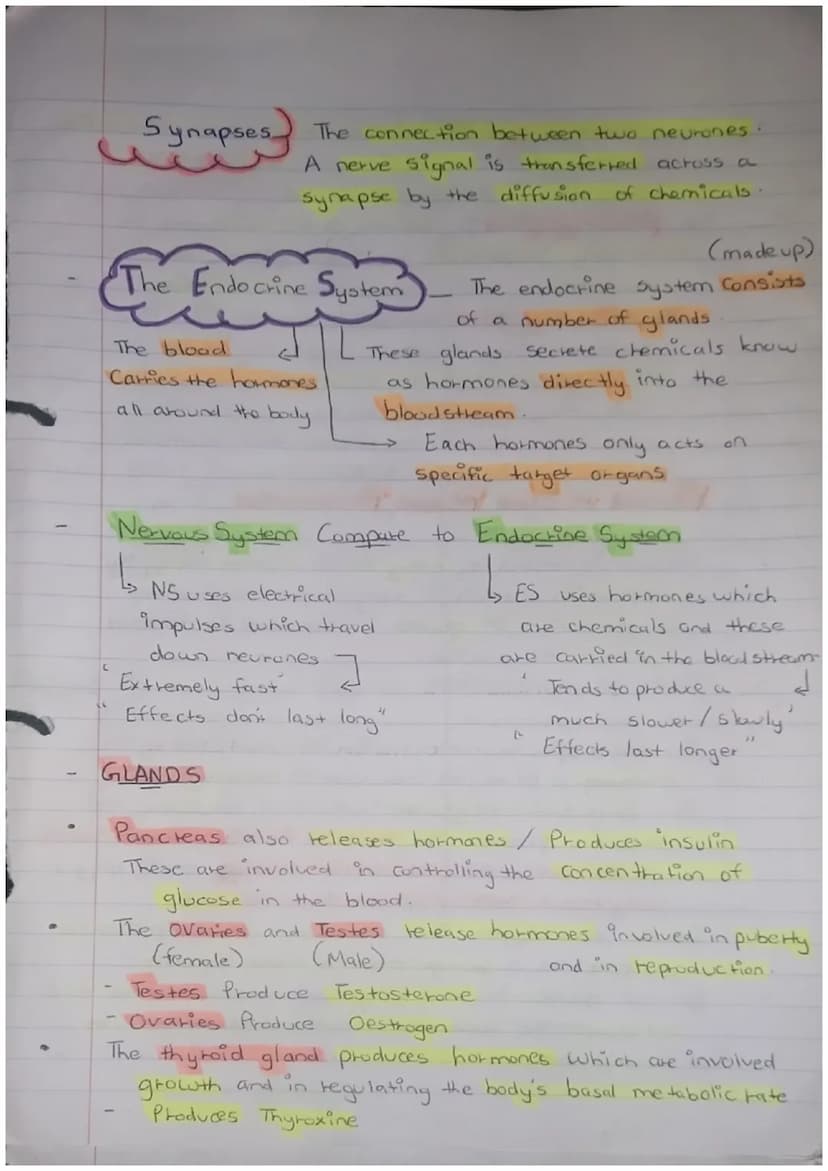 Synapses
The connection between two neurones.
A nerve signal is transferred across a
synapse by the diffusion of chemicals.
(made up)
- The Endocrine System - The endocrine system consists
of a number of glands
The blood
Carries the hormones
all around the body
These glands secrete chemicals know
as hormones directly into the
bloodstream.
Each hormones only acts on
specific target organs
- Nervous System Compare to Endocrine System
NS uses electrical
impulses which travel
down neurones
"Extremely fast"
"Effects don't last long"
ES uses hormones which
are chemicals and these
are carried in the bloodstream
"Tends to produce a
much slower / slowly"
"Effects last longer"
- GLANDS
• Pancreas also releases hormones / Produces insulin
These are involved in controlling the concentration of
glucose in the blood.
• The Ovaries and Testes release hormones involved in puberty
(female) (Male) and in reproduction.
- Testes Produce Testosterone
- Ovaries Produce Oestrogen
• The thyroid gland produces hormones which are involved
growth and in regulating the body's basal metabolic rate
- Produces Thyroxine